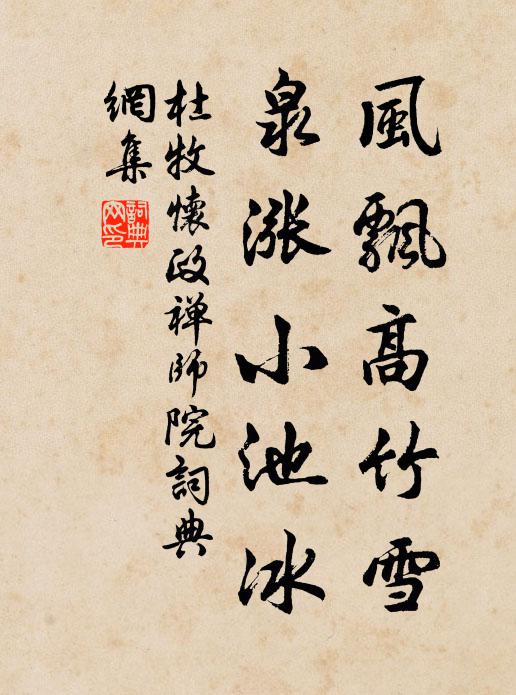 風飄高竹雪
泉漲小池冰
杜牧懷政禅師院詞典
網集
詞典
网印